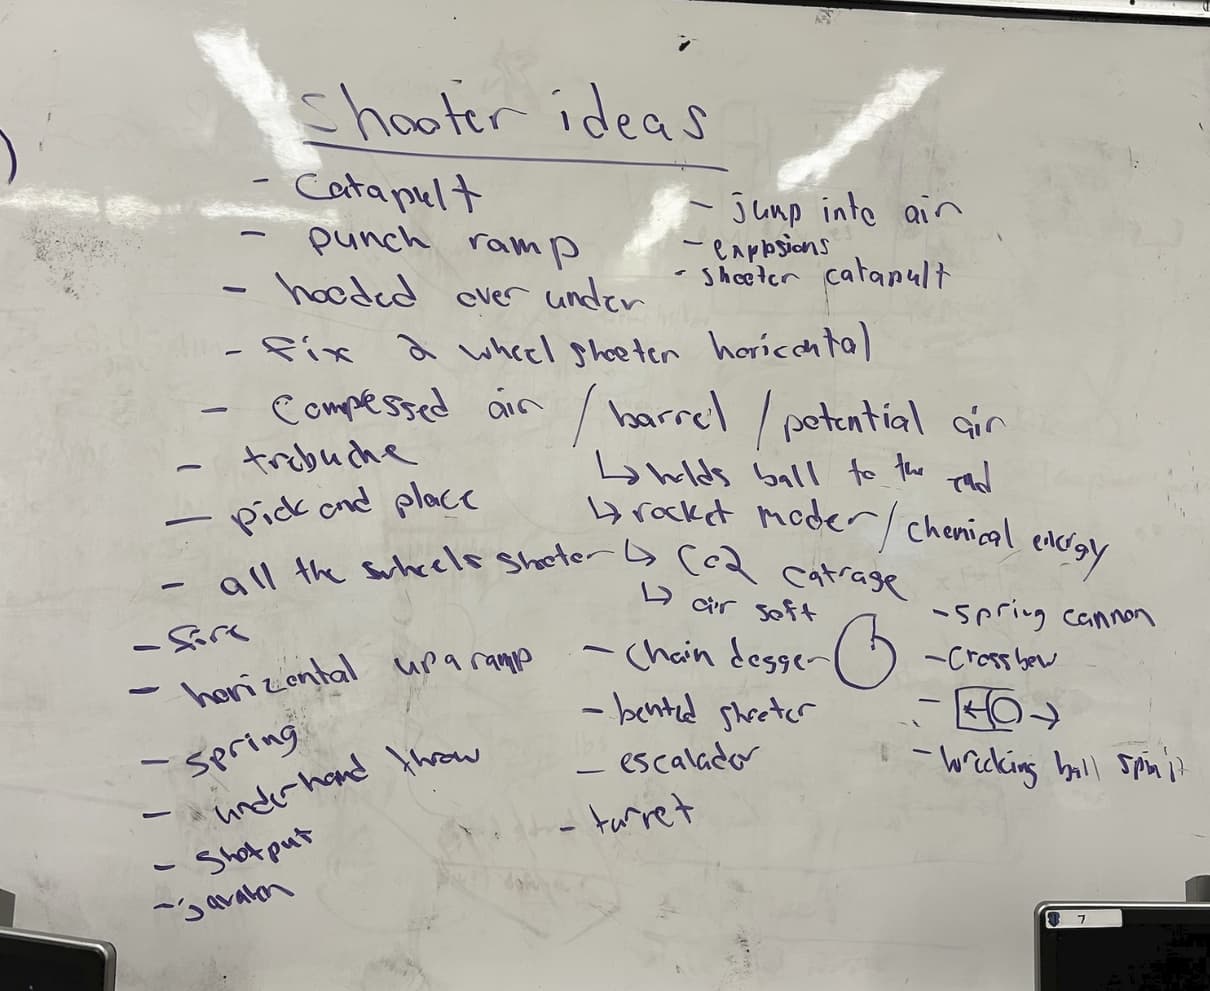 Shooter ideas
- Catapult
- punch ramp
- hooded over under
- jump into air
- explosions
- shooter catapult
- fix 2 wheel shooter horicontal
- Compessed air / barrel / potential air
↳ holds ball to the end
↳ rocket moder / chemical energy
↳ Co2 catrage
↳ air soft
- trebuche
- pick and place
- all the wheels shooter
- fire
- horizontal up a ramp
- Spring
- underhand throw
- Shotput
- javalon
- Chain degger
- bented shooter
- escalador
- turret
- Spring cannon
- Crossbow
- ← →
- wricking ball spin it
7